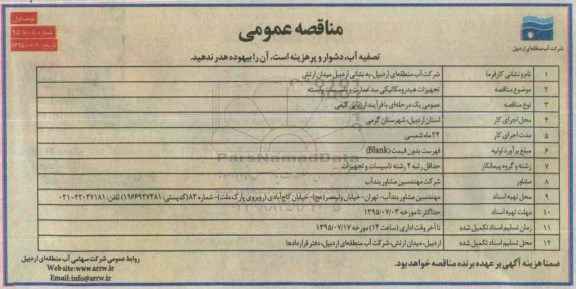 مناقصه عمومی
نوبت اول
شرکت آب منطقه‌ای اردبیل
تصفیه آب، دشوار و پرهزینه است، آن را بیهوده هدر ندهید.
۱ نام و نشانی کارفرما شرکت آب منطقه‌ای اردبیل، به نشانی اردبیل میدان ارتش
۲ موضوع مناقصه تجهیزات هیدرومکانیکی سد عمارت و تاسیسات وابسته
۳ نوع مناقصه عمومی یک مرحله‌ای با فرآیند ارزیابی کیفی
۴ محل اجرای کار استان اردبیل، شهرستان گرمی
۵ مدت اجرای کار ۲۲ ماه شمسی
۶ مبلغ برآورد اولیه فهرست بدون قیمت (Blank)
۷ رشته و گروه پیمانکار حداقل رتبه ۴ رشته تاسیسات و تجهیزات
۸ مشاور شرکت مهندسین مشاور بندآب
۹ محل تهیه اسناد مهندسین مشاور بندآب- تهران - خیابان ولیعصر (عج)- خیابان کاج‌آبادی (روبروی پارک ملت)- شماره ۸۳ (کدپستی: ۱۹۶۶۹۳۷۴۸۱) تلفن: ۲۲۰۳۷۱۸۱-۰۲۱
۱۰ مهلت تهیه اسناد حداکثر تا مورخه ۱۳۹۵/۰۷/۰۳
۱۱ زمان تسلیم اسناد تکمیل شده تا آخر وقت اداری (ساعت ۱۴) مورخه ۱۳۹۵/۰۷/۱۷
۱۲ محل تسلیم اسناد تکمیل شده اردبیل، میدان ارتش، شرکت آب منطقه‌ای اردبیل، دفتر قراردادها
ضمنا هزینه آگهی بر عهده برنده مناقصه خواهد بود.
روابط عمومی شرکت سهامی آب منطقه‌ای اردبیل
Web site: www.arrw.ir
Email: info@arrw.ir
ParsNamadData